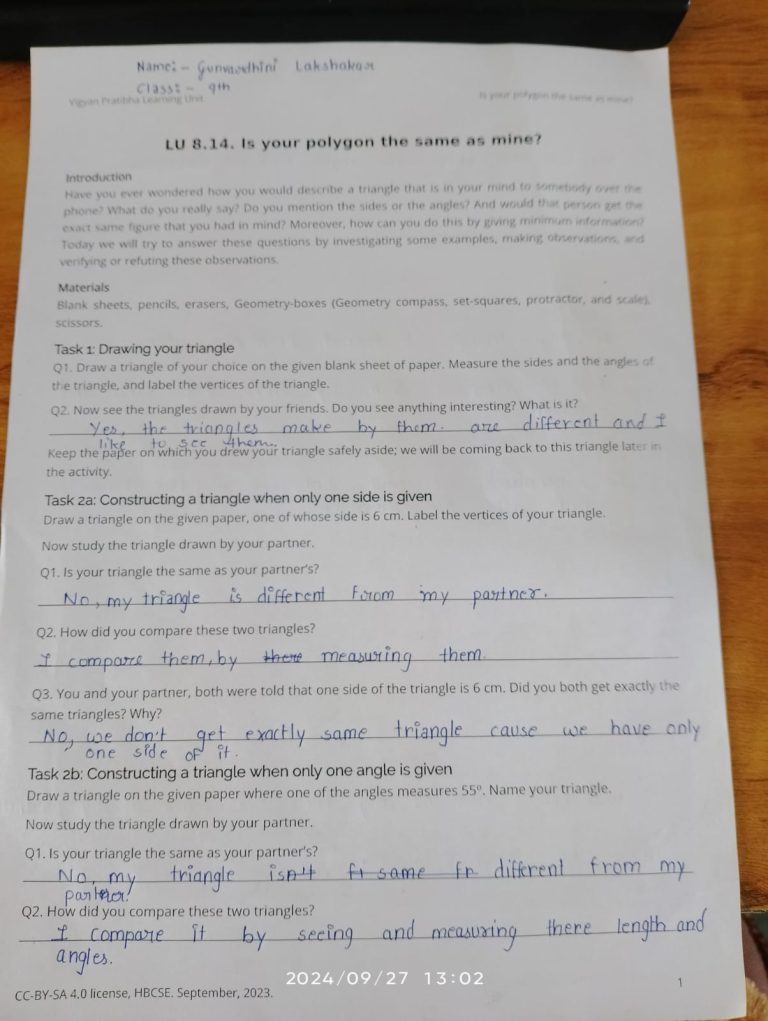 Name:- Gunwardhini Lakshakar
Class:- 9th
Vigyan Pratibha Learning Unit
Is your polygon the same as mine?
LU 8.14. Is your polygon the same as mine?
Introduction
Have you ever wondered how you would describe a triangle that is in your mind to somebody over the
phone? What do you really say? Do you mention the sides or the angles? And would that person get the
exact same figure that you had in mind? Moreover, how can you do this by giving minimum information?
Today we will try to answer these questions by investigating some examples, making observations, and
verifying or refuting these observations.
Materials
Blank sheets, pencils, erasers, Geometry-boxes (Geometry compass, set-squares, protractor, and scale),
scissors.
Task 1: Drawing your triangle
Q1. Draw a triangle of your choice on the given blank sheet of paper. Measure the sides and the angles of
the triangle, and label the vertices of the triangle.
Q2. Now see the triangles drawn by your friends. Do you see anything interesting? What is it?
Yes, the triangles make by them. are different and I
like to see them.
Keep the paper on which you drew your triangle safely aside; we will be coming back to this triangle later in
the activity.
Task 2a: Constructing a triangle when only one side is given
Draw a triangle on the given paper, one of whose side is 6 cm. Label the vertices of your triangle.
Now study the triangle drawn by your partner.
Q1. Is your triangle the same as your partner's?
No, my triangle is different from my partner.
Q2. How did you compare these two triangles?
I compare them, by there measuring them.
Q3. You and your partner, both were told that one side of the triangle is 6 cm. Did you both get exactly the
same triangles? Why?
No, we don't get exactly same triangle cause we have only
one side of it.
Task 2b: Constructing a triangle when only one angle is given
Draw a triangle on the given paper where one of the angles measures 55º. Name your triangle.
Now study the triangle drawn by your partner.
Q1. Is your triangle the same as your partner's?
No, my triangle isn't same different from my
partner.
Q2. How did you compare these two triangles?
I compare it by seeing and measuring there length and
angles.
2024/09/27 13:02
1
CC-BY-SA 4.0 license, HBCSE. September, 2023.